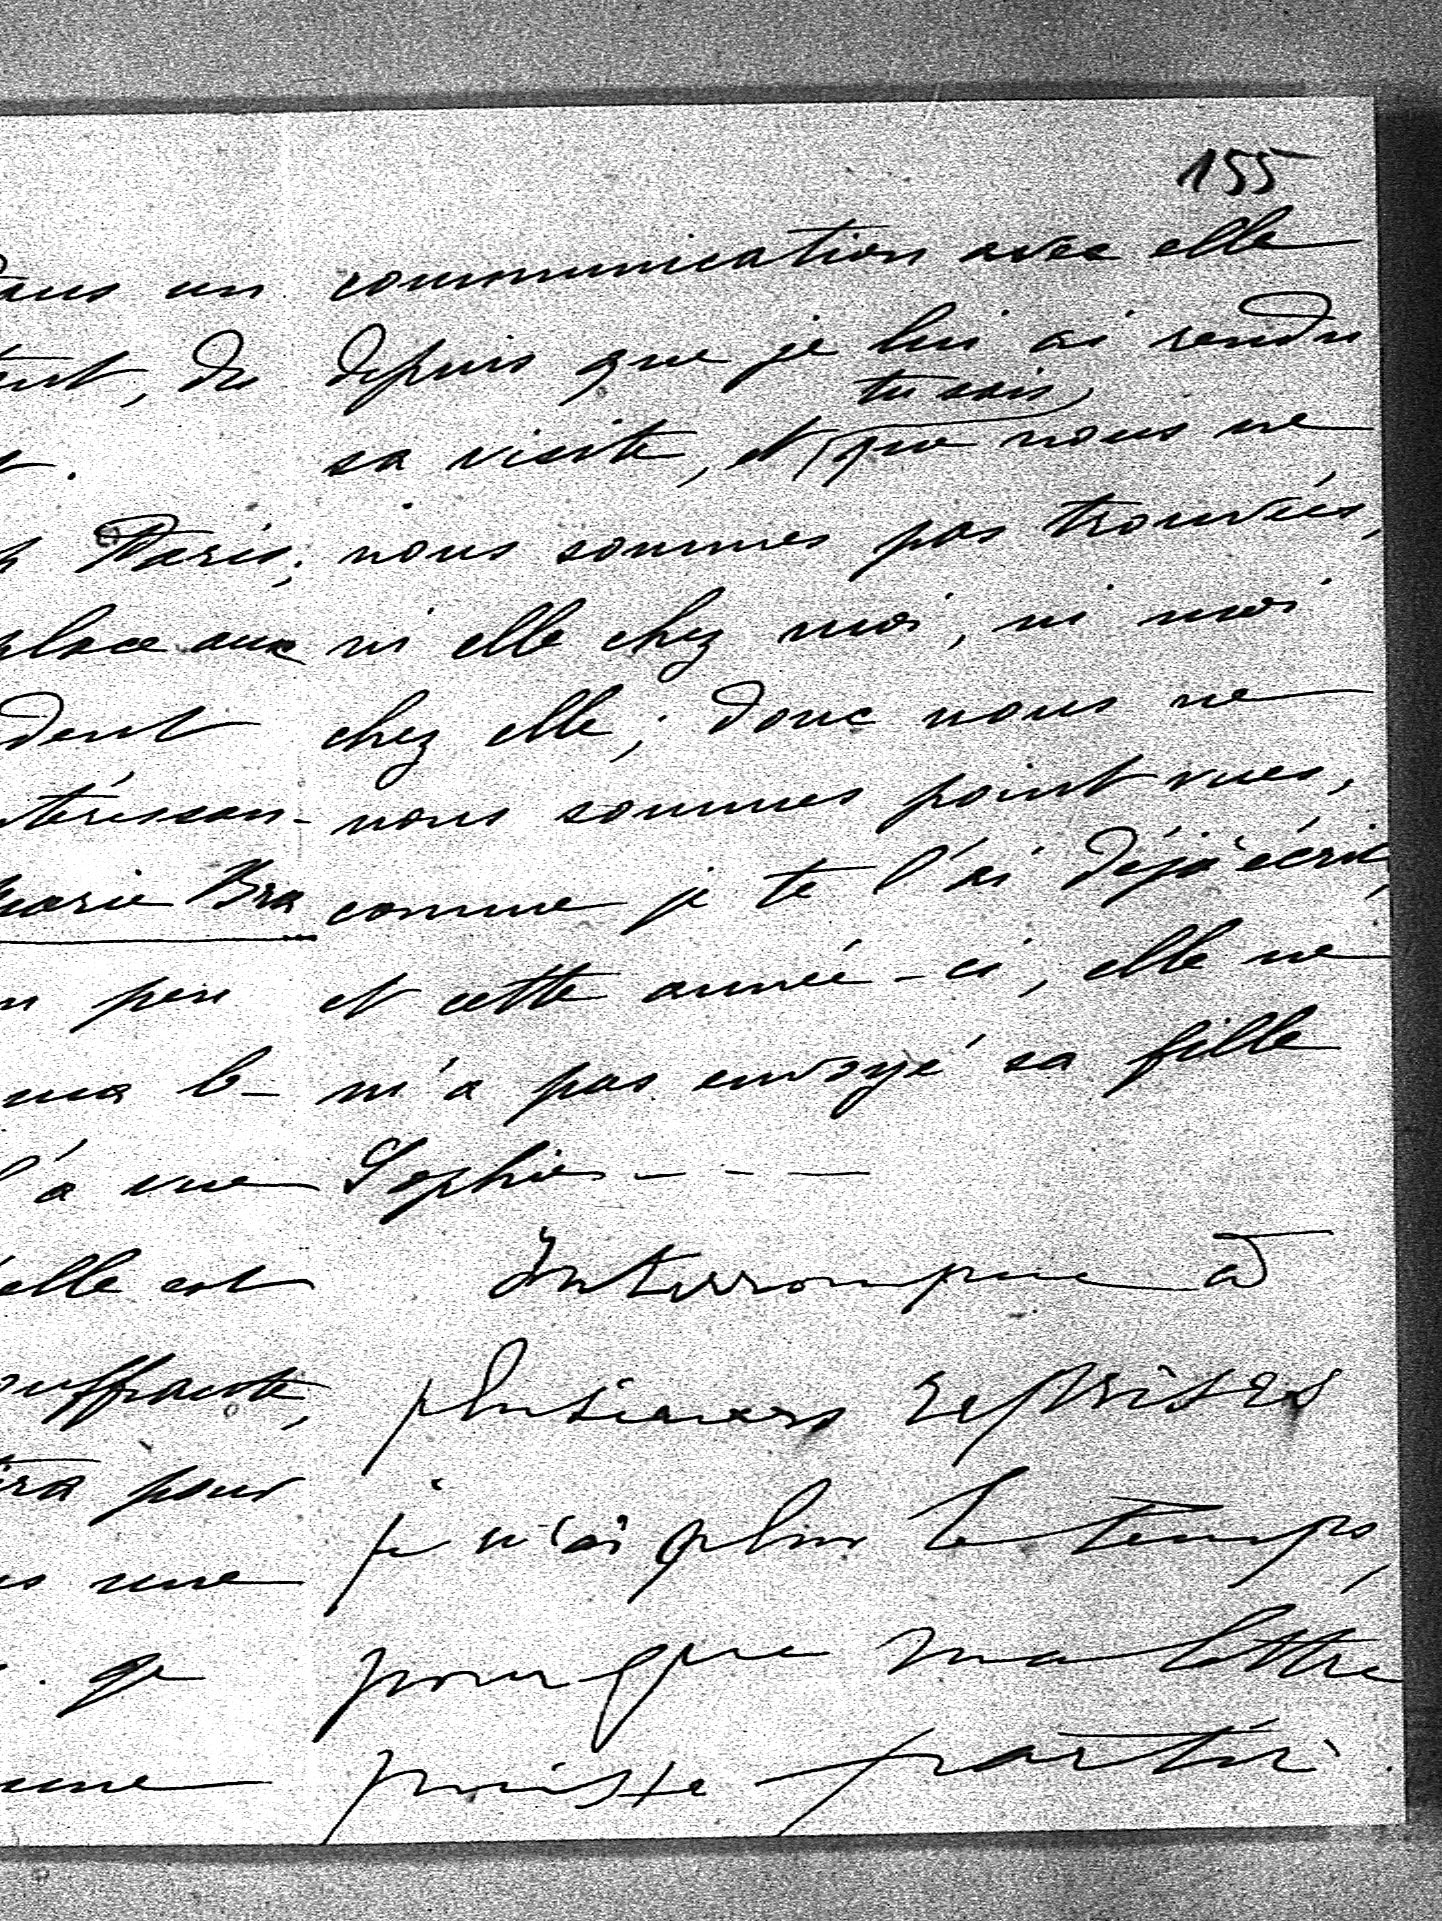 155
communication avec elle
depuis que je lui ai rendu
tu sais,
sa visite, et que nous ne
nous sommes pas trouvées,
ni elle chez moi, ni moi
chez elle; donc nous ne
nous sommes point vues,
comme je te l'ai déjà écrit,
et cette année-ci, elle ne
m'a pas envoyé sa fille
Sophie - - -
Interrompue à
plusieurs reprises
je n'ai plus le temps,
pour que ma lettre
puisse partir.
un
du
Paris;
place aux
dent
Marie Bra
peu
ma le-
l'a vue
elle est
pour
une